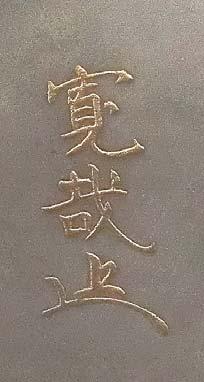 寛哉止